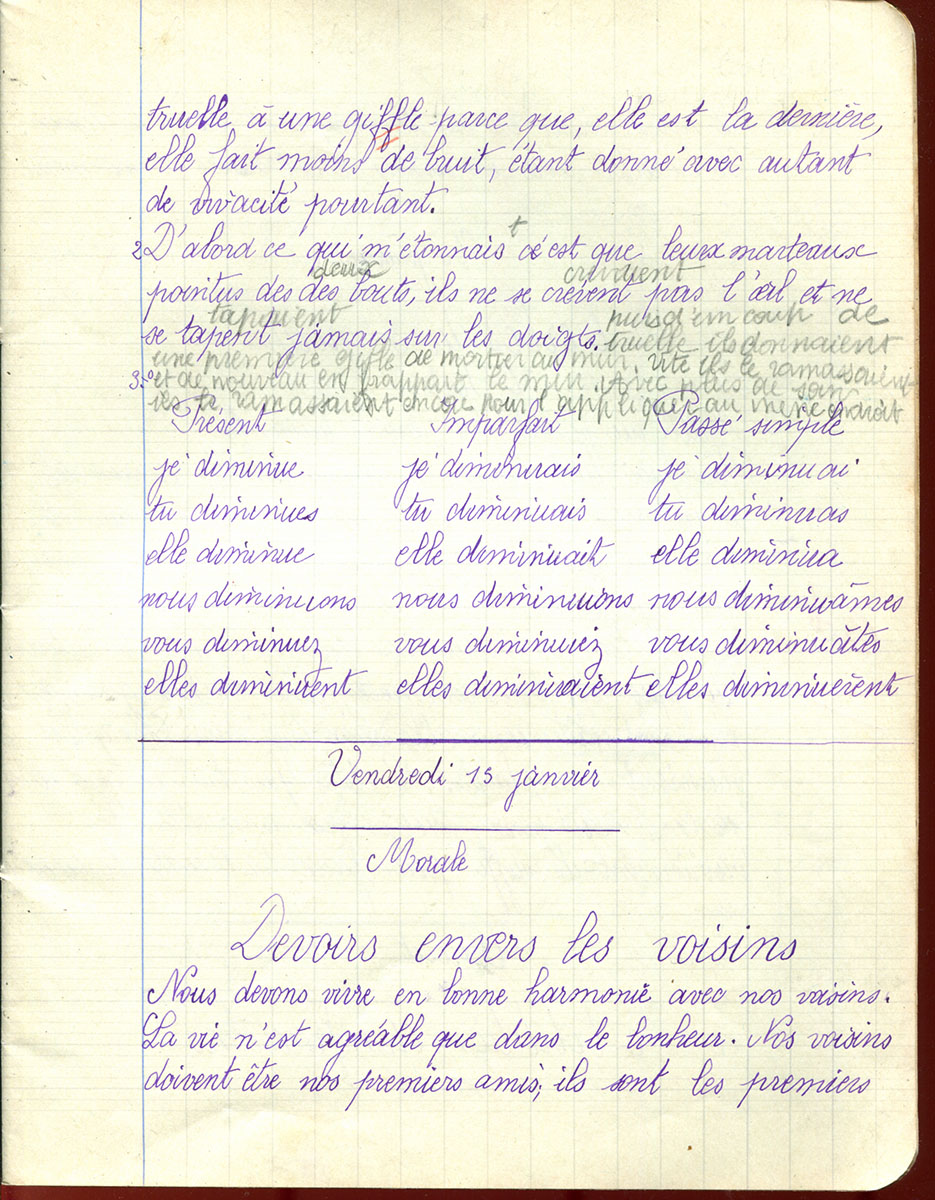 truelle, à une giffle parce que, elle est la dernière,
elle fait moins de bruit, étant donné avec autant
de vivacité pourtant.
t
2 D'abord ce qui m'étonnais c'est que leurs marteaux
deux crevaient
pointus des des bouts, ils ne se crèvent pas l'œil et ne
tapaient puis d'un coup de
se tapent jamais sur les doigts. truelle ils donnaient
une première gifle de mortier au mur. Vite ils le ramassaient
3.° et de nouveau en frappait le mur. Avec plus de soin
ils le ramassaient encore pour l'appliquer au même endroit
Présent Imparfait Passé simple
je diminue je diminuais je diminuai
tu diminues tu diminuais tu diminuas
elle diminue elle diminuait elle diminua
nous diminuons nous diminuions nous diminuâmes
vous diminuez vous diminuiez vous diminuâtes
elles diminuent elles diminuaient elles diminuèrent
Vendredi 15 janvier
Morale
Devoirs envers les voisins
Nous devons vivre en bonne harmonie avec nos voisins.
La vie n'est agréable que dans le bonheur. Nos voisins
doivent être nos premiers amis; ils sont les premiers